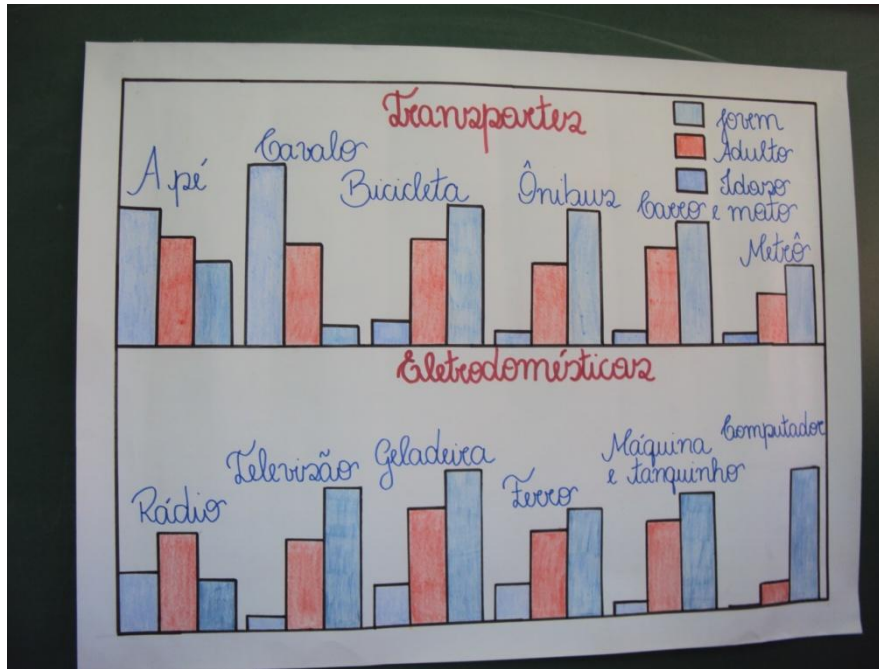 Transportes
Jovem
Adulto
Idoso
A pé
Cavalo
Bicicleta
Ônibus
Carro e moto
Metrô
Eletrodomésticos
Rádio
Televisão
Geladeira
Ferro
Máquina
e tanquinho
Computador